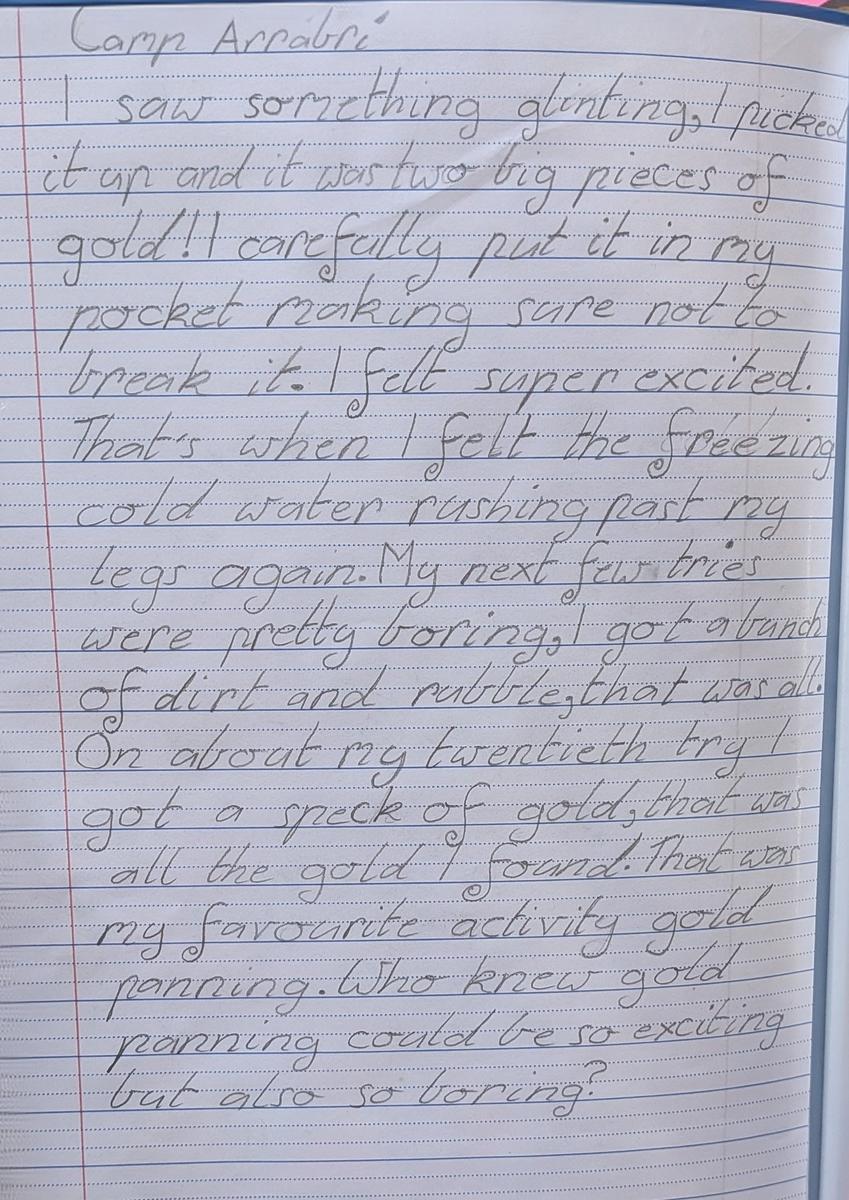 Camp Arrabri
I saw something glinting, I picked
it up and it was two big pieces of
gold! I carefully put it in my
pocket making sure not to
break it. I felt super excited.
That's when I felt the freezing
cold water rushing past my
legs again. My next few tries
were pretty boring, I got a bunch
of dirt and rubble, that was all.
On about my twentieth try I
got a speck of gold, that was
all the gold I found. That was
my favourite activity gold
panning. Who knew gold
panning could be so exciting
but also so boring?